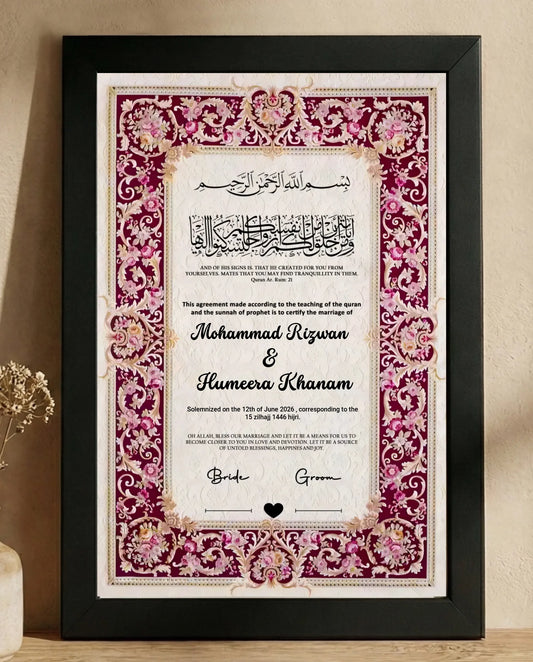 بِسْمِ اللَّهِ الرَّحْمَنِ الرَّحِيمِ
وَمِنْ آيَاتِهِ أَنْ خَلَقَ لَكُم مِّنْ أَنفُسِكُمْ أَزْوَاجًا لِّتَسْكُنُوا إِلَيْهَا
AND OF HIS SIGNS IS, THAT HE CREATED FOR YOU FROM
YOURSELVES, MATES THAT YOU MAY FIND TRANQUILLITY IN THEM.
Quran Ar. Rum: 21
This agreement made according to the teaching of the quran
and the sunnah of prophet is to certify the marriage of
Mohammad Rizwan
&
Humeera Khanam
Solemnized on the 12th of June 2026 , corresponding to the
15 zilhajj 1446 hijri.
OH ALLAH, BLESS OUR MARRIAGE AND LET IT BE A MEANS FOR US TO
BECOME CLOSER TO YOU IN LOVE AND DEVOTION. LET IT BE A SOURCE
OF UNTOLD BLESSINGS, HAPPINES AND JOY.
Bride Groom